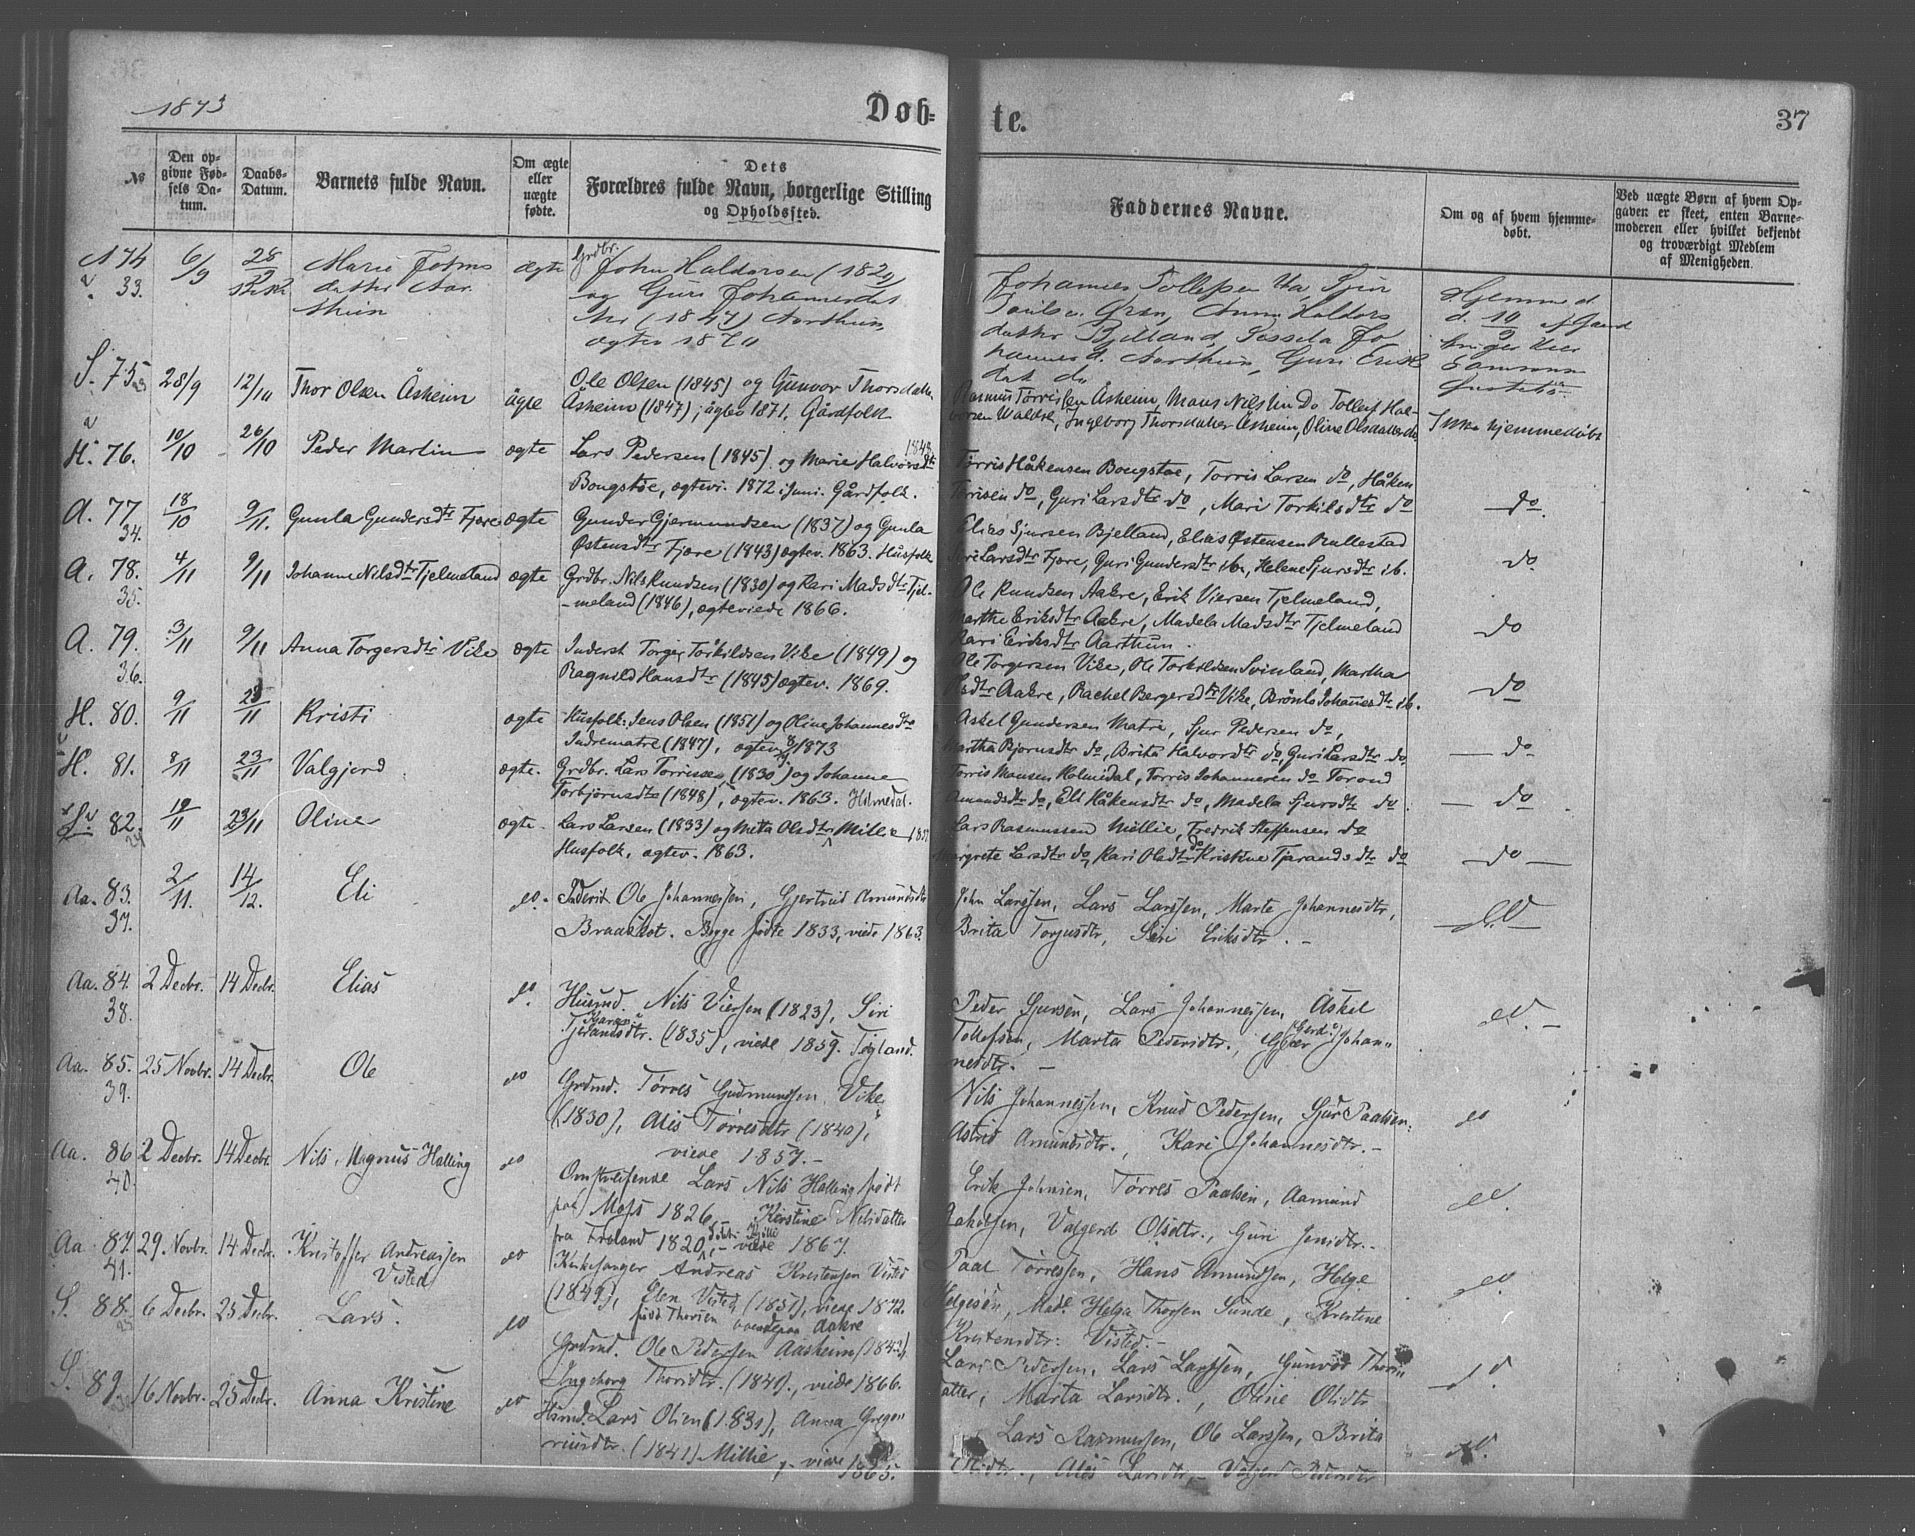 1873
Døb=
te.
37
No
Den op-
givne Fød-
sels Da-
tum.
Daabs-
Datum.
Barnets fulde Navn.
Om ægte
eller
uægte
fødte.
Dets
Forældres fulde Navn, borgerlige Stilling
og Opholdssted.
Faddernes Navne.
Om og af hvem hjemme-
døbt.
Ved uægte Børn af hvem Op-
gaven er skeet, enten Barne-
moderen eller hvilket bekjendt
og troværdigt Medlem
af Menigheden.
A 74 6/9 28 Marie Johns ægte Grdbr. John Haldorsen
33. datter Aar og Guri Johannesdat
thun ter (1847) Aarthun
ægtev 1870
Johannes Tollefsen
datter Bjelland, Sissela Jo
hannesd. Aarthun, Guri Eriks
dat do
Hjemmed.
d. 10/9
S. 75 28/9 12/10 Thor Olsen Åsheim ägte Ole Olsen (1845) og Gunvor Thorsdatter
Åsheim (1847); ägtev 1871. Gårdfolk
Rasmus Torrissen Åsheim, Mons Nilssen Do Tollef Hal-
vorsen Waldre, Ingeborg Thorsdatter Åsheim, Oline Olsdatter do
Ikke hjemmedøbt
H. 76. 10/10 26/10 Peder Martin ægte Lars Pedersen (1845) og Marie Halvorsdtr 1848
Bongstøe, ægtevi. 1872 i Juni. Gårdfolk.
Torris Håkensen Bongstøe, Torris Larsen do, Håken
Torrisen do, Guri Larsdtr do, Mari Torkilsdtr do
do.
A. 77 18/10 9/11. Gunla Gundersdtr Fjære ægte Gunder Gjermundsen (1837) og Gunla
34. Østensdtr Fjære (1843) ægtev. 1863. Husfolk
Elias Sjursen Bjelland, Elias Østensen Rullestad
Siri Larsdtr Fjære, Guri Gundersdtr ib., Helene Sjursdtr ib.
do
A. 78. 4/11 9/11 Johanne Nilsdtr Tjelmeland ægte Grdbr. Nils Knudsen (1830) og Kari Madsdtr Tjel-
35. -meland (1846), ægteviede 1866.
Ole Knudsen Aakre, Erik Viersen Tjelmeland,
Marthe Eriksdtr Aakre, Madela Madsdtr Tjelmeland
Kari Eriksdtr Aarthun.
do
A. 79. 3/11 9/11 Anna Torgersdtr Vike ægte Inderst Torger Torkildsen Vike (1849) og
36. Ragnild Hansdtr (1845) ægtev. 1869.
Ole Torgersen Vike, Ole Torkildsen Svinland, Martha
Aakre, Rachel Bergersdtr Vike, Brønla Johannesdtr ib.
do
H. 80. 9/11 23/11 Kristi ægte Husfolk: Jens Olsen (1851) og Oline Johannesdtr
Indrematre (1847), ægtev. 1873
Askel Gundersen Matre, Sjur Pedersen do,
Martha Bjornsdtr do, Brita Halvordtr do, Guri Larsdtr do
do
H. 81. 8/11 23/11 Valgjerd ægte. Grdbr. Lars Torrissen (1830) og Johanne
Torbjornsdtr (1848), ægtev. 1863. Holmedal.
Torris Monsen Holmedal, Torris Johannesen do Torond
Amundsdtr do, Eli Håkensdtr do, Madela Sjursdtr do.
do
S. 82. 19/11 23/11 Oline ægte. Lars Larsen (1833) og Meta Olsdtr Millie
Husfolk, ægtev. 1863.
Lars Rasmussen Millie, Fredrik Steffensen do
Margrete Larsdtr do, Kari Olsdtr do Kristine Tjarandsdtr do
do
Aa. 83. 2/11. 14/12. Eli do. Inderst Ole Johannessen, Gjertrud Amundsdtr
37. Braatvet. Begge fødte 1833, viede 1863.
John Larssen, Lars Larssen, Marte Johannesdtr,
Brita Torjusdtr, Siri Eriksdtr. –
do
Aa. 84. 2 Decbr. 14 Decbr. Elias do. Husmd. Nils Viersen (1823), Siri
38. Tjerandsdtr. (1835), viede 1859. Tøgland.
Peder Sjursen, Lars Johannessen, Askel
Tollefsen, Marta Pedersdtr., Johan=
nesdtr. –
do. –
Aa. 85. 25 Novbr. 14 Decbr. Ole do Grdmd. Tørres Gudmundsen Vike
39. (1830), Alis Tørresdtr (1840),
viede 1857. –
Nils Johannessen, Knud Pedersen, Sjur Paalsen.
Astrid Amundsdtr., Kari Johannesdtr. –
do
Aa. 86 2 Decbr. 14 Decbr. Nils Magnus Halling do Omstreifende Lars Nils Halling født
40. paa Moss 1826, Kerstine Nilsdatter
fra Froland 1820, – viede 1867.
Erik Johnsen, Tørres Paalsen, Aamund
Jakobsen, Valgerd Olsdtr., Guri Jensdtr. –
do.
Aa. 87. 29 Novbr. 14 Decbr. Kristoffer Andreassen do Kirkesanger Andreas Kristensen Visted
41. Visted (1849), Elen Visted (1851), viede 1872.
født Thorsen boende paa Aakre
Paal Tørressen, Hans Amundsen, Helge
Helgesen, Mad. Helga Thorsen Sunde, Kristine
Kristensdtr: Visted. –
do.
S. 88. 6 Decbr. 25 Decbr. Lars. do Grdmd. Ole Pedersen Aasheim (1843)
Ingeborg Thorsdtr. (1840)., viede 1866.
Lars Pedersen, Lars Larssen, Gunvor Thors=
datter, Marta Larsdtr., Oline Olsdtr
do.
S. 89. 16 Novbr. 25 Decbr. Anna Kristine do Husmd. Lars Olsen (1831), Anna Grego=
riusdtr. (1841) Millie, – viede
1865.
Lars Rasmussen, Ole Larssen, Brita
Olsdtr., Alis Larsdtr, – Valgerd Pedersdtr
do.